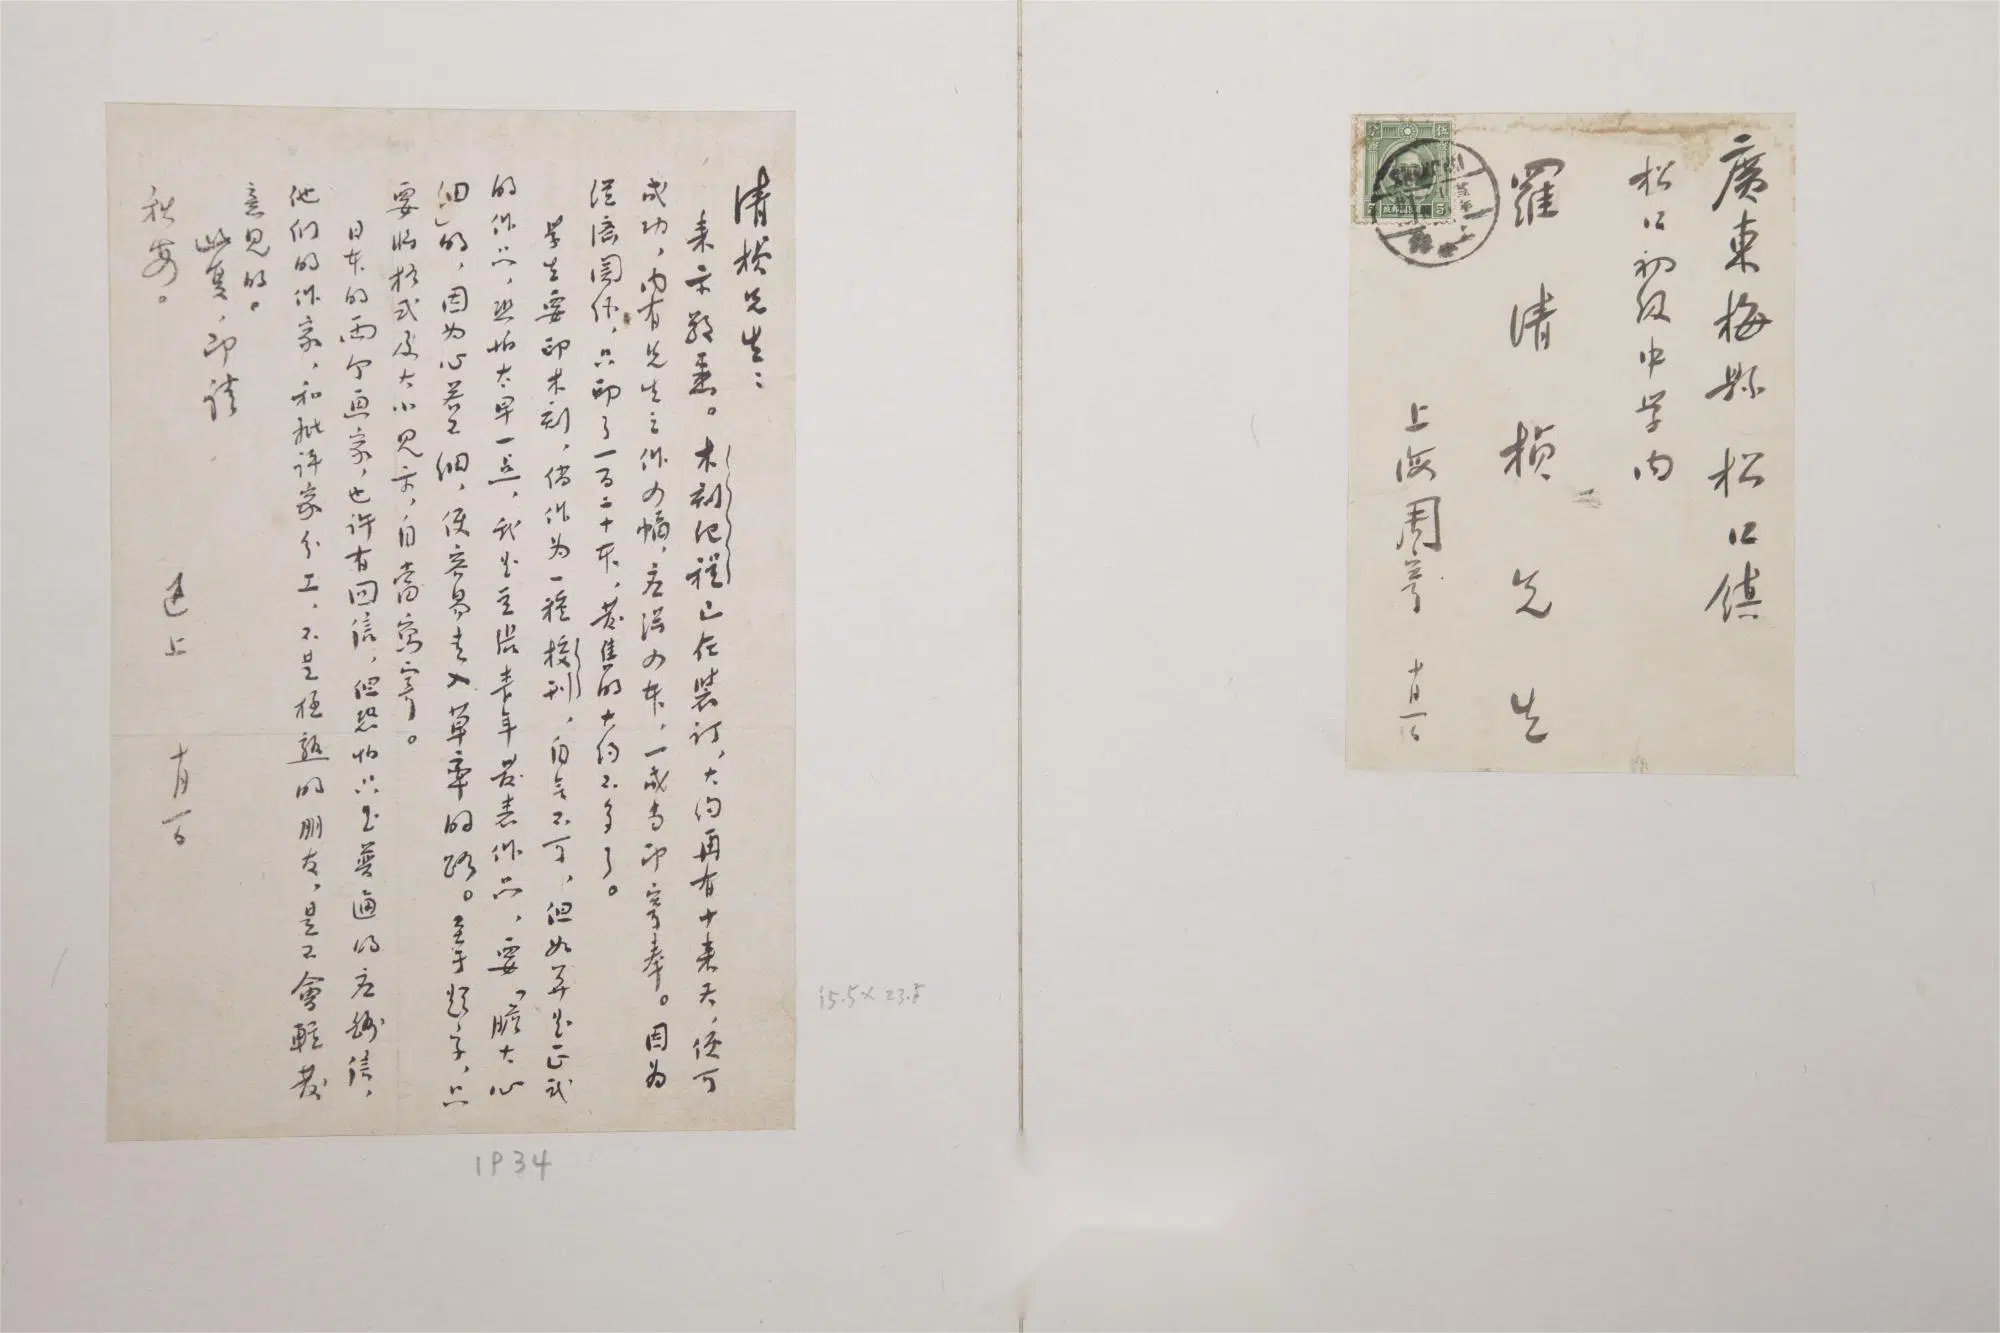 廣東梅縣松口鎮
松口初级中学内
羅清楨先生
上海周寄 十月一日
清楨先生：
来示敬悉。木刻纪程已在裝订，大约再有十来天，便可
成功，内有先生之作四幅，应得四本，一成当即寄奉。因为
经濟関係，只印了一百二十本，发售的大约不多了。
学生要印木刻，倘作为一種校刊，自無不可，但如算是正式
的作品，恐怕太早一点，我是主張青年發表作品，要「膽大心
细」的，因为心若不细，便容易走入草率的路。至于题字，只
要将格式及大小見示，自當寫寄。
日本的两个画家，也许有回信，但恐怕只是普通的应酬信，
他们的作家，和批评家分工，不是極熟的朋友，是不會輕發
意見的。
此复，即请
秋安。
迅上 十月一日
15.5×23.5
1934